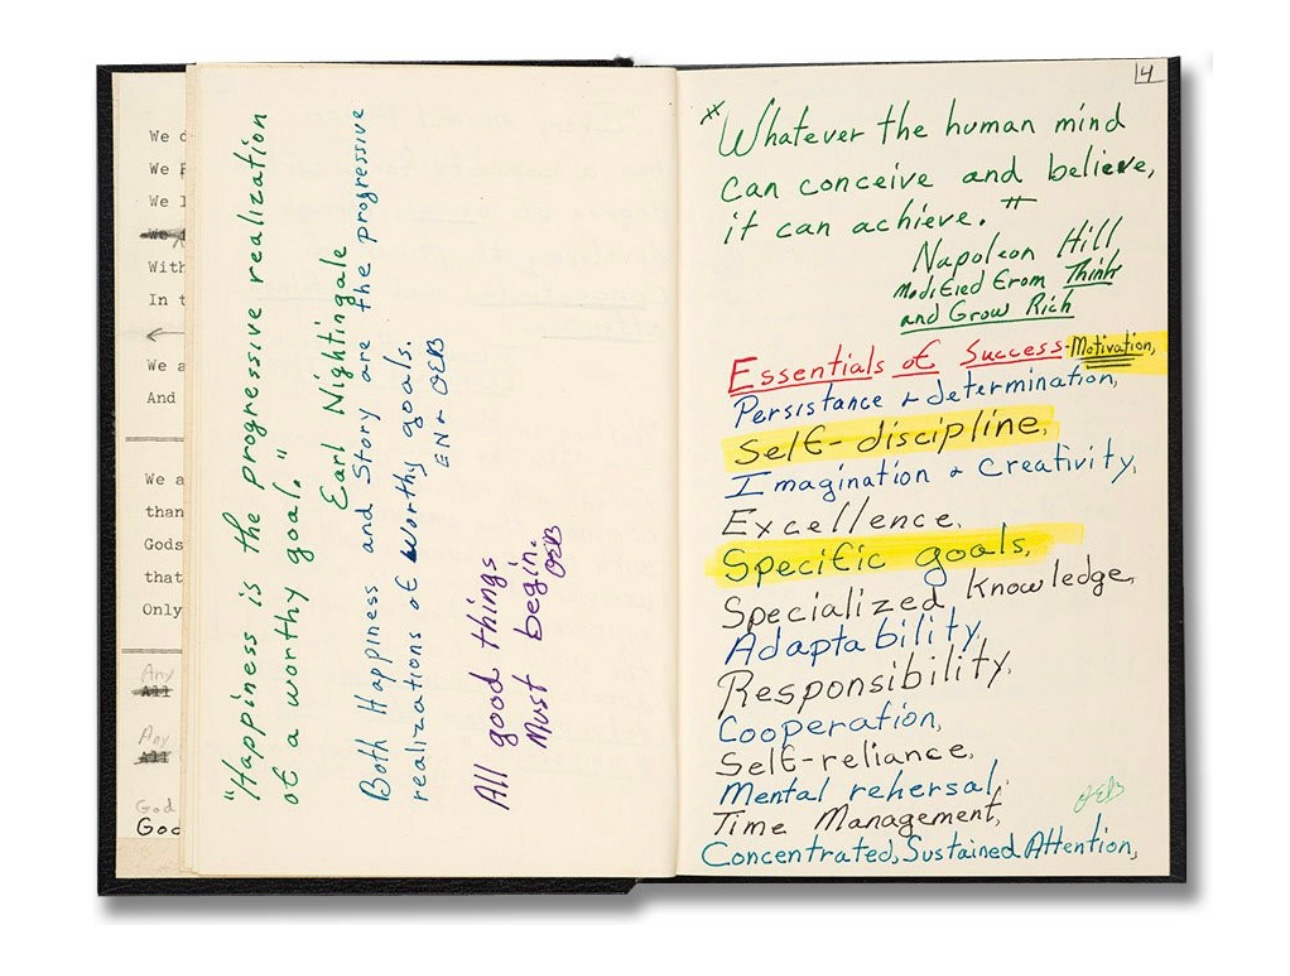 We
We
We
We
With
In t
We a
And
We a
than
Gods
that
Only
Any
All
Any
All
God
God
"Happiness is the progressive realization
of a worthy goal."
Earl Nightingale
Both Happiness and Story are the progressive
realizations of worthy goals.
EN & OEB
All good things
Must begin.
OEB
14
"Whatever the human mind
can conceive and believe,
it can achieve."
Napoleon Hill
Modified from Think
and Grow Rich
Essentials of Success-Motivation,
Persistance & determination,
Self-discipline,
Imagination & Creativity,
Excellence,
Specific goals,
Specialized Knowledge,
Adaptability,
Responsibility,
Cooperation,
Self-reliance,
Mental rehersal,
OEB
Time Management,
Concentrated, Sustained Attention,